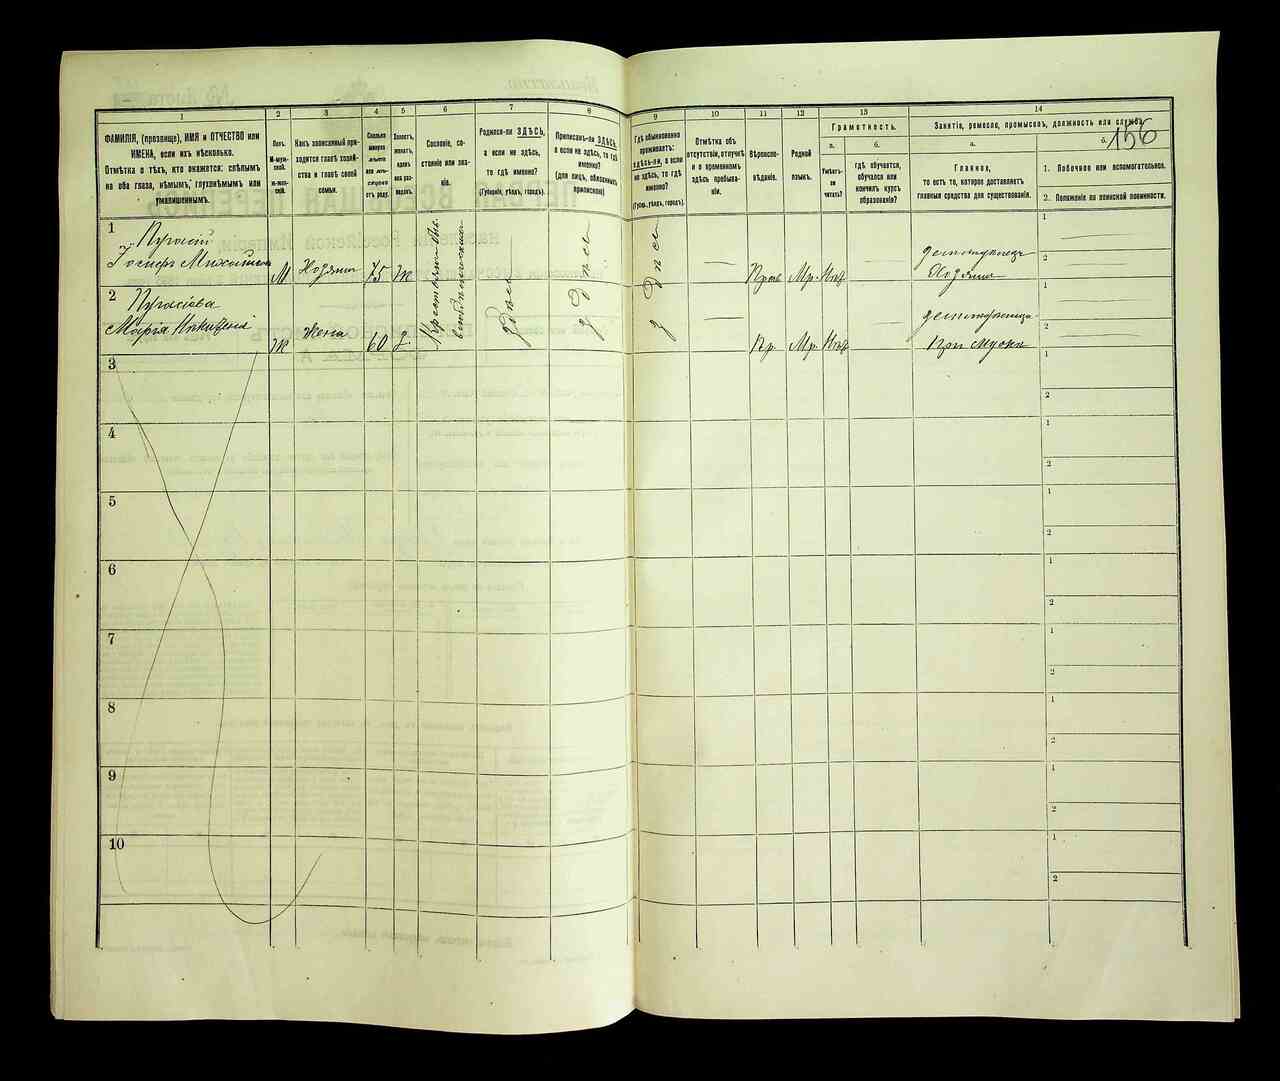 156
1
2
3
4
5
6
7
8
9
10
11
12
13
14
ФАМИЛІЯ, (прозвище), ИМЯ и ОТЧЕСТВО или
ИМЕНА, если ихъ нѣсколько.
Отмѣтка о тѣхъ, кто окажется: слѣпымъ
на оба глаза, нѣмымъ, глухонѣмымъ или
умалишеннымъ.
Полъ.
М-муж-
ской.
Ж-жен-
скій.
Какъ записанный при-
ходится главѣ хозяй-
ства и главѣ своей
семьи.
Сколько
минуло
лѣтъ
или мѣ-
сяцевъ
отъ роду.
Холостъ,
женатъ,
вдовъ
или раз-
веденъ.
Сословіе, со-
стояніе или зва-
ніе.
Родился-ли ЗДѢСЬ,
а если не здѣсь,
то гдѣ именно?
(Губернія, уѣздъ, городъ).
Приписанъ-ли ЗДѢСЬ,
а если не здѣсь, то гдѣ
именно?
(для лицъ, обязанныхъ
припискою)
Гдѣ обыкновенно
проживаетъ:
здѣсь-ли, а если
не здѣсь, то гдѣ
именно?
(Губер., уѣздъ, городъ).
Отмѣтка объ
отсутствіи, отлучкѣ
и о временномъ
здѣсь пребыва-
ніи.
Вѣроиспо-
вѣданіе.
Родной
языкъ.
Грамотность.
а.
б.
Умѣетъ-
ли
читать?
гдѣ обучается,
обучался или
кончилъ курсъ
образованія?
Занятіе, ремесло, промыселъ, должность или служба
а.
б.
Главное,
то есть то, которое доставляетъ
главныя средства для существованія.
1. Побочное или вспомогательное.
2. Положеніе по воинской повинности.
1
Іосифъ
М
Хозяинъ
75
Ж
здѣсь
Здѣсь
Здѣсь
Прав
Мр.
Нѣт
Хозяинъ
1
2
2
Марія
Ж
Жена
60
З
Пр.
Мр.
Нѣт
При мужѣ
1
2
3
1
2
4
1
2
5
1
2
6
1
2
7
1
2
8
1
2
9
1
2
10
1
2